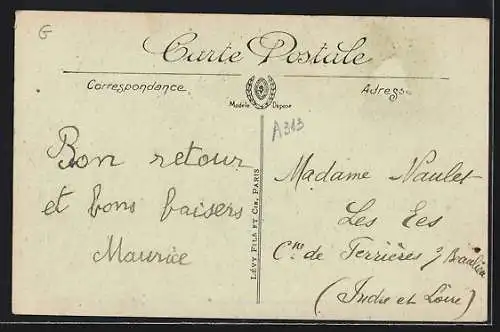 G
Carte Postale
Correspondance
Adresse
Modèle Déposé
A313
Bon retour
et bons baisers
Maurice
LÉVY FILS ET CIE, PARIS
Madame Naulet
Les Ees
Cne de Ferrières s/ Beaulieu
(Indre et Loire)